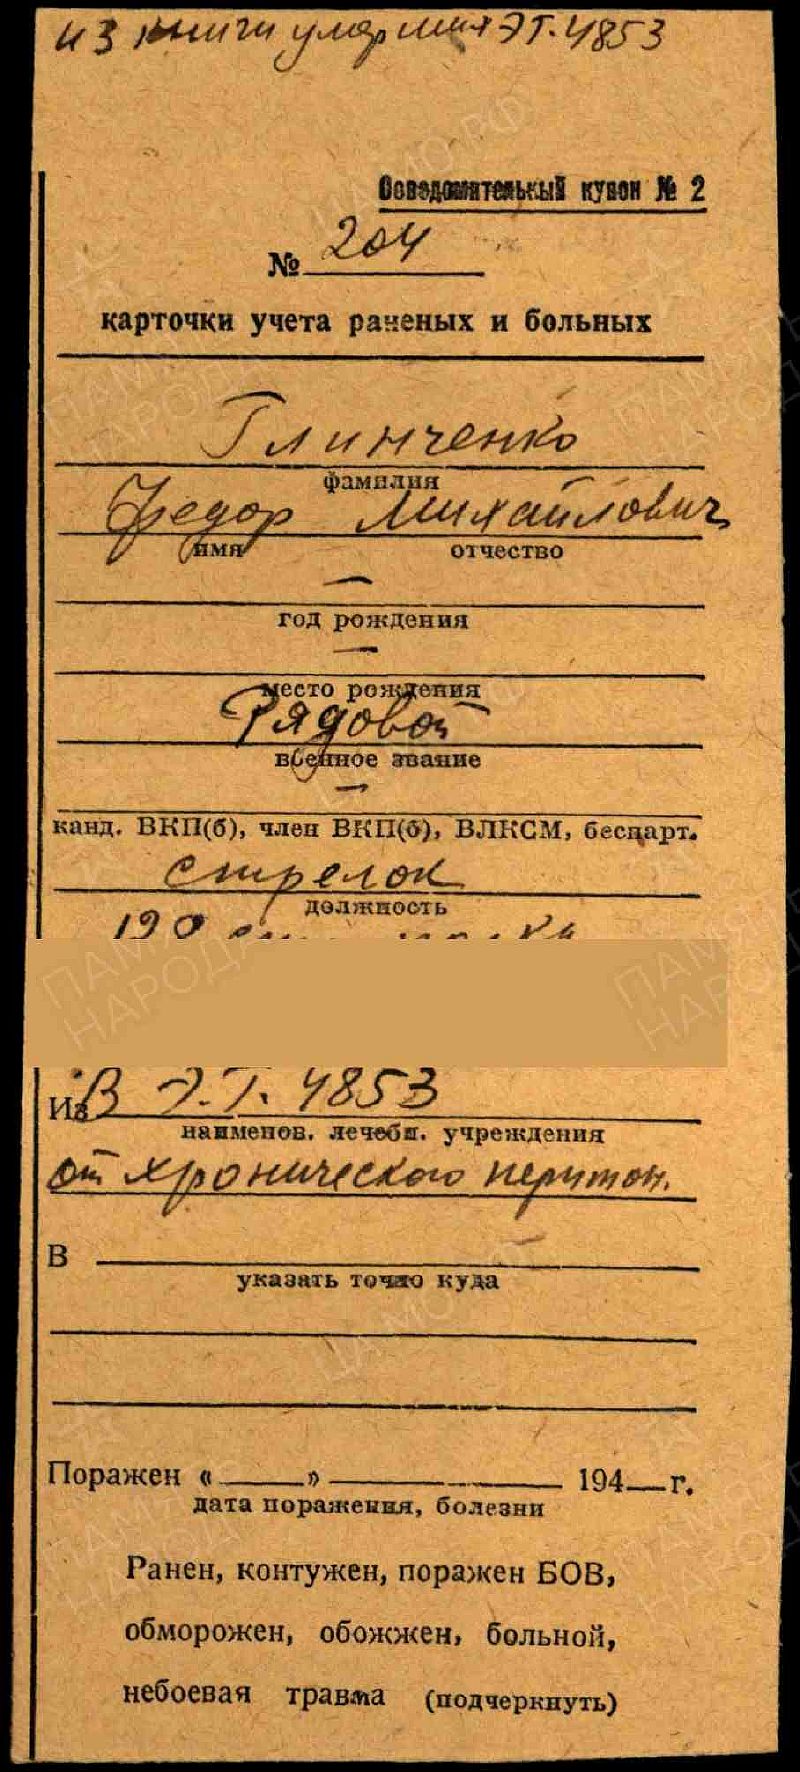 из книги умерших ЭГ. 4853
Осведомительный купон № 2
№ 204
карточки учета раненых и больных
Глинченко
фамилия
Федор Михайлович
имя отчество
—
год рождения
—
место рождения
Рядовой
военное звание
—
канд. ВКП(б), член ВКП(б), ВЛКСМ, беспарт.
стрелок
должность
190
Из В Э.Г. 4853
наименов. лечебн. учреждения
от хронического перитон.
В
указать точно куда
Поражен « » 194 г.
дата поражения, болезни
Ранен, контужен, поражен БОВ,
обморожен, обожжен, больной,
небоевая травма (подчеркнуть)